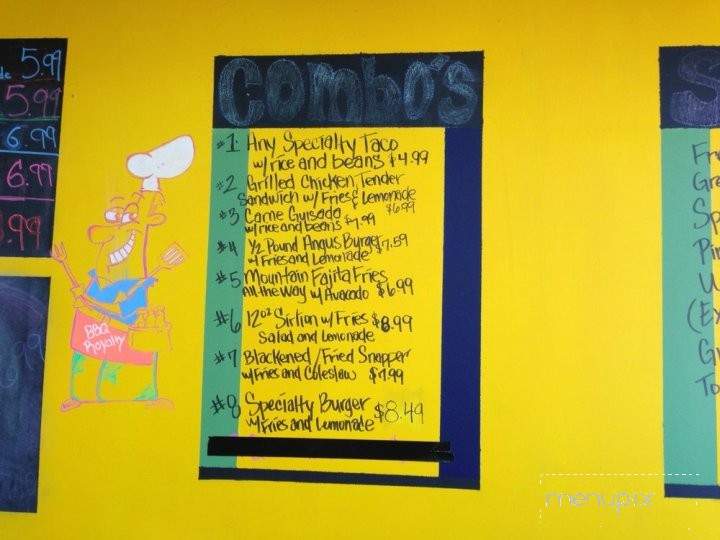 de 5.99
5.99
6.99
6.99
.99
BBQ
Royalty
Combo's
#1 Any Specialty Taco
w/rice and beans $4.99
#2 Grilled Chicken Tender
Sandwich w/Fries & Lemonade
$6.99
#3 Carne Guisada
w/rice and beans $7.99
#4 1/2 Pound Angus Burger $7.59
w/Fries and Lemonade
#5 Mountain Fajita Fries
All the Way w/ Avacado $6.99
#6 12oz Sirlion w/Fries $8.99
Salad and Lemonade
#7 Blackened/Fried Snapper
w/Fries and Coleslaw $7.99
#8 Specialty Burger $8.49
w/Fries and Lemonade
S
Fr
Gra
Sp
Pin
(Ex
G
To
menupix